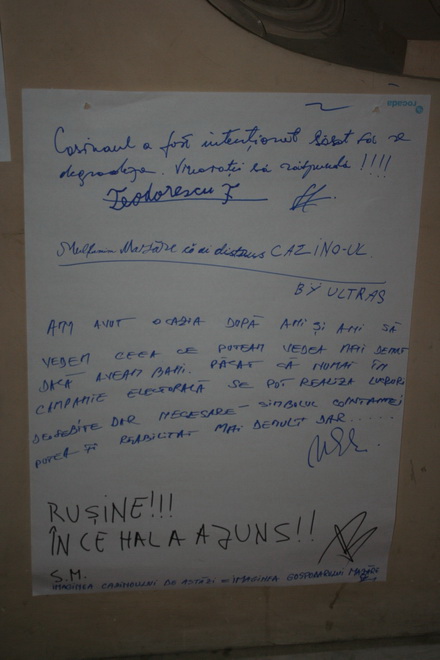 rocada
Casinoul a fost intenționat lăsat să se
degradeze. Vinovații să răspundă !!!!
Teodorescu F
Mulțumim Mazăre că ai distrus CAZINO-UL.
BY ULTRAS
AM AVUT OCAZIA DUPĂ ANI ȘI ANI SĂ
VEDEM CEEA CE PUTEAM VEDEA MAI DEMULT
DACĂ AVEAM BANI. PĂCAT CĂ NUMAI ÎN
CAMPANIE ELECTORALĂ SE POT REALIZA LUCRURI
DEOSEBITE DAR NECESARE - SIMBOLUL CONSTANȚEI
PUTEA FI REABILITAT MAI DEMULT DAR .....
RUȘINE!!!
ÎN CE HAL A AJUNS!!
S.M.
IMAGINEA CAZINOULUI DE ASTĂZI = IMAGINEA GOSPODARULUI MAZĂRE